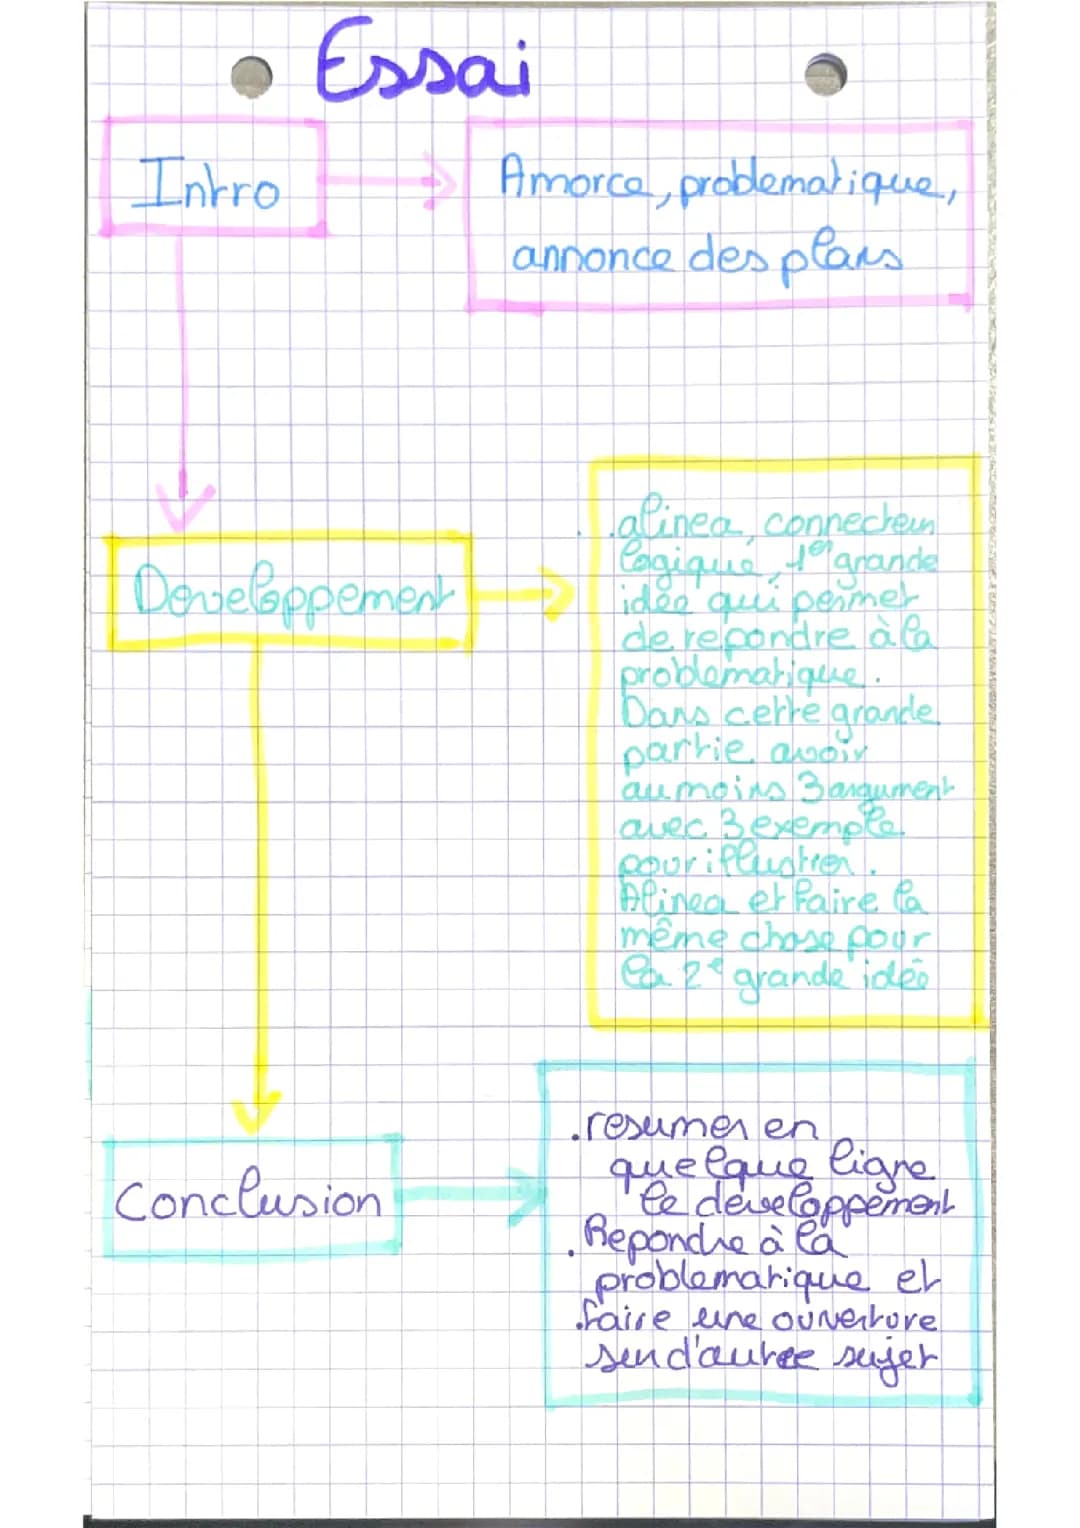 Essai
Intro
Amorce, problematique,
annonce des plans
Developpement
.alinea, connecteur
logique, 1er grande
idée qui permet
de repondre à la
problematique.
Dans cette grande
partie avoir
au moins 3 argument
avec 3 exemple
pour illustrer.
Alinea et faire la
même chose pour
la 2e grande idée
Conclusion
.resumer en
quelque ligne
le developpement
.Repondre à la
problematique et
.faire une ouverture
sur d'autre sujet